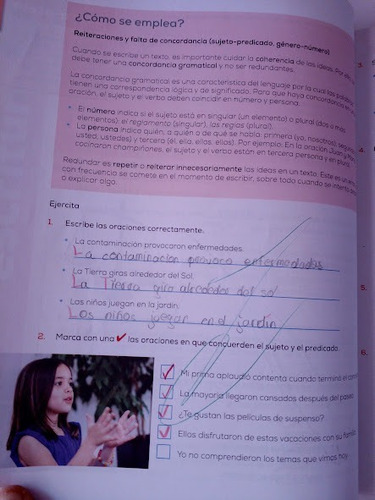 ¿Cómo se emplea?
Reiteraciones y falta de concordancia (sujeto-predicado, género-número)
Cuando se escribe un texto, es importante cuidar la coherencia de las ideas. Por
debe tener una concordancia gramatical y no ser redundantes.
La concordancia gramatical es una característica del lenguaje por la cual las
tienen una correspondencia lógica y de significado. Para que haya concordancia
oración, el sujeto y el verbo deben coincidir en número y persona.
El número indica si el sujeto está en singular (un elemento) o plural (dos o más
elementos): el reglamento (singular), las reglas (plural).
La persona indica quién, a quién o de qué se habla: primera (yo, nosotros),
usted, ustedes) y tercera (él, ella, ellos, ellas). Por ejemplo: En la oración
cocinaron champiñones, el sujeto y el verbo están en tercera persona y en
Redundar es repetir o reiterar innecesariamente las ideas en un texto. Este es un
con frecuencia se comete en el momento de escribir, sobre todo cuando se intenta
o explicar algo.
Ejercita
1. Escribe las oraciones correctamente.
La contaminación provocaron enfermedades.
La contaminación provoco enfermedades
La Tierra giras alrededor del Sol.
La Tierra gira alrededor del sol
Los niños juegan en la jardín.
Los niños juegan en el jardin
2. Marca con una ✓ las oraciones en que concuerden el sujeto y el predicado.
Mi prima aplaudió contenta cuando terminó el
La mayoría llegaron cansados después del paseo
¿Te gustan las películas de suspenso?
Ellos disfrutaron de estas vacaciones con su
Yo no comprendieron los temas que vimos hoy.
3.
4.
5.
6.